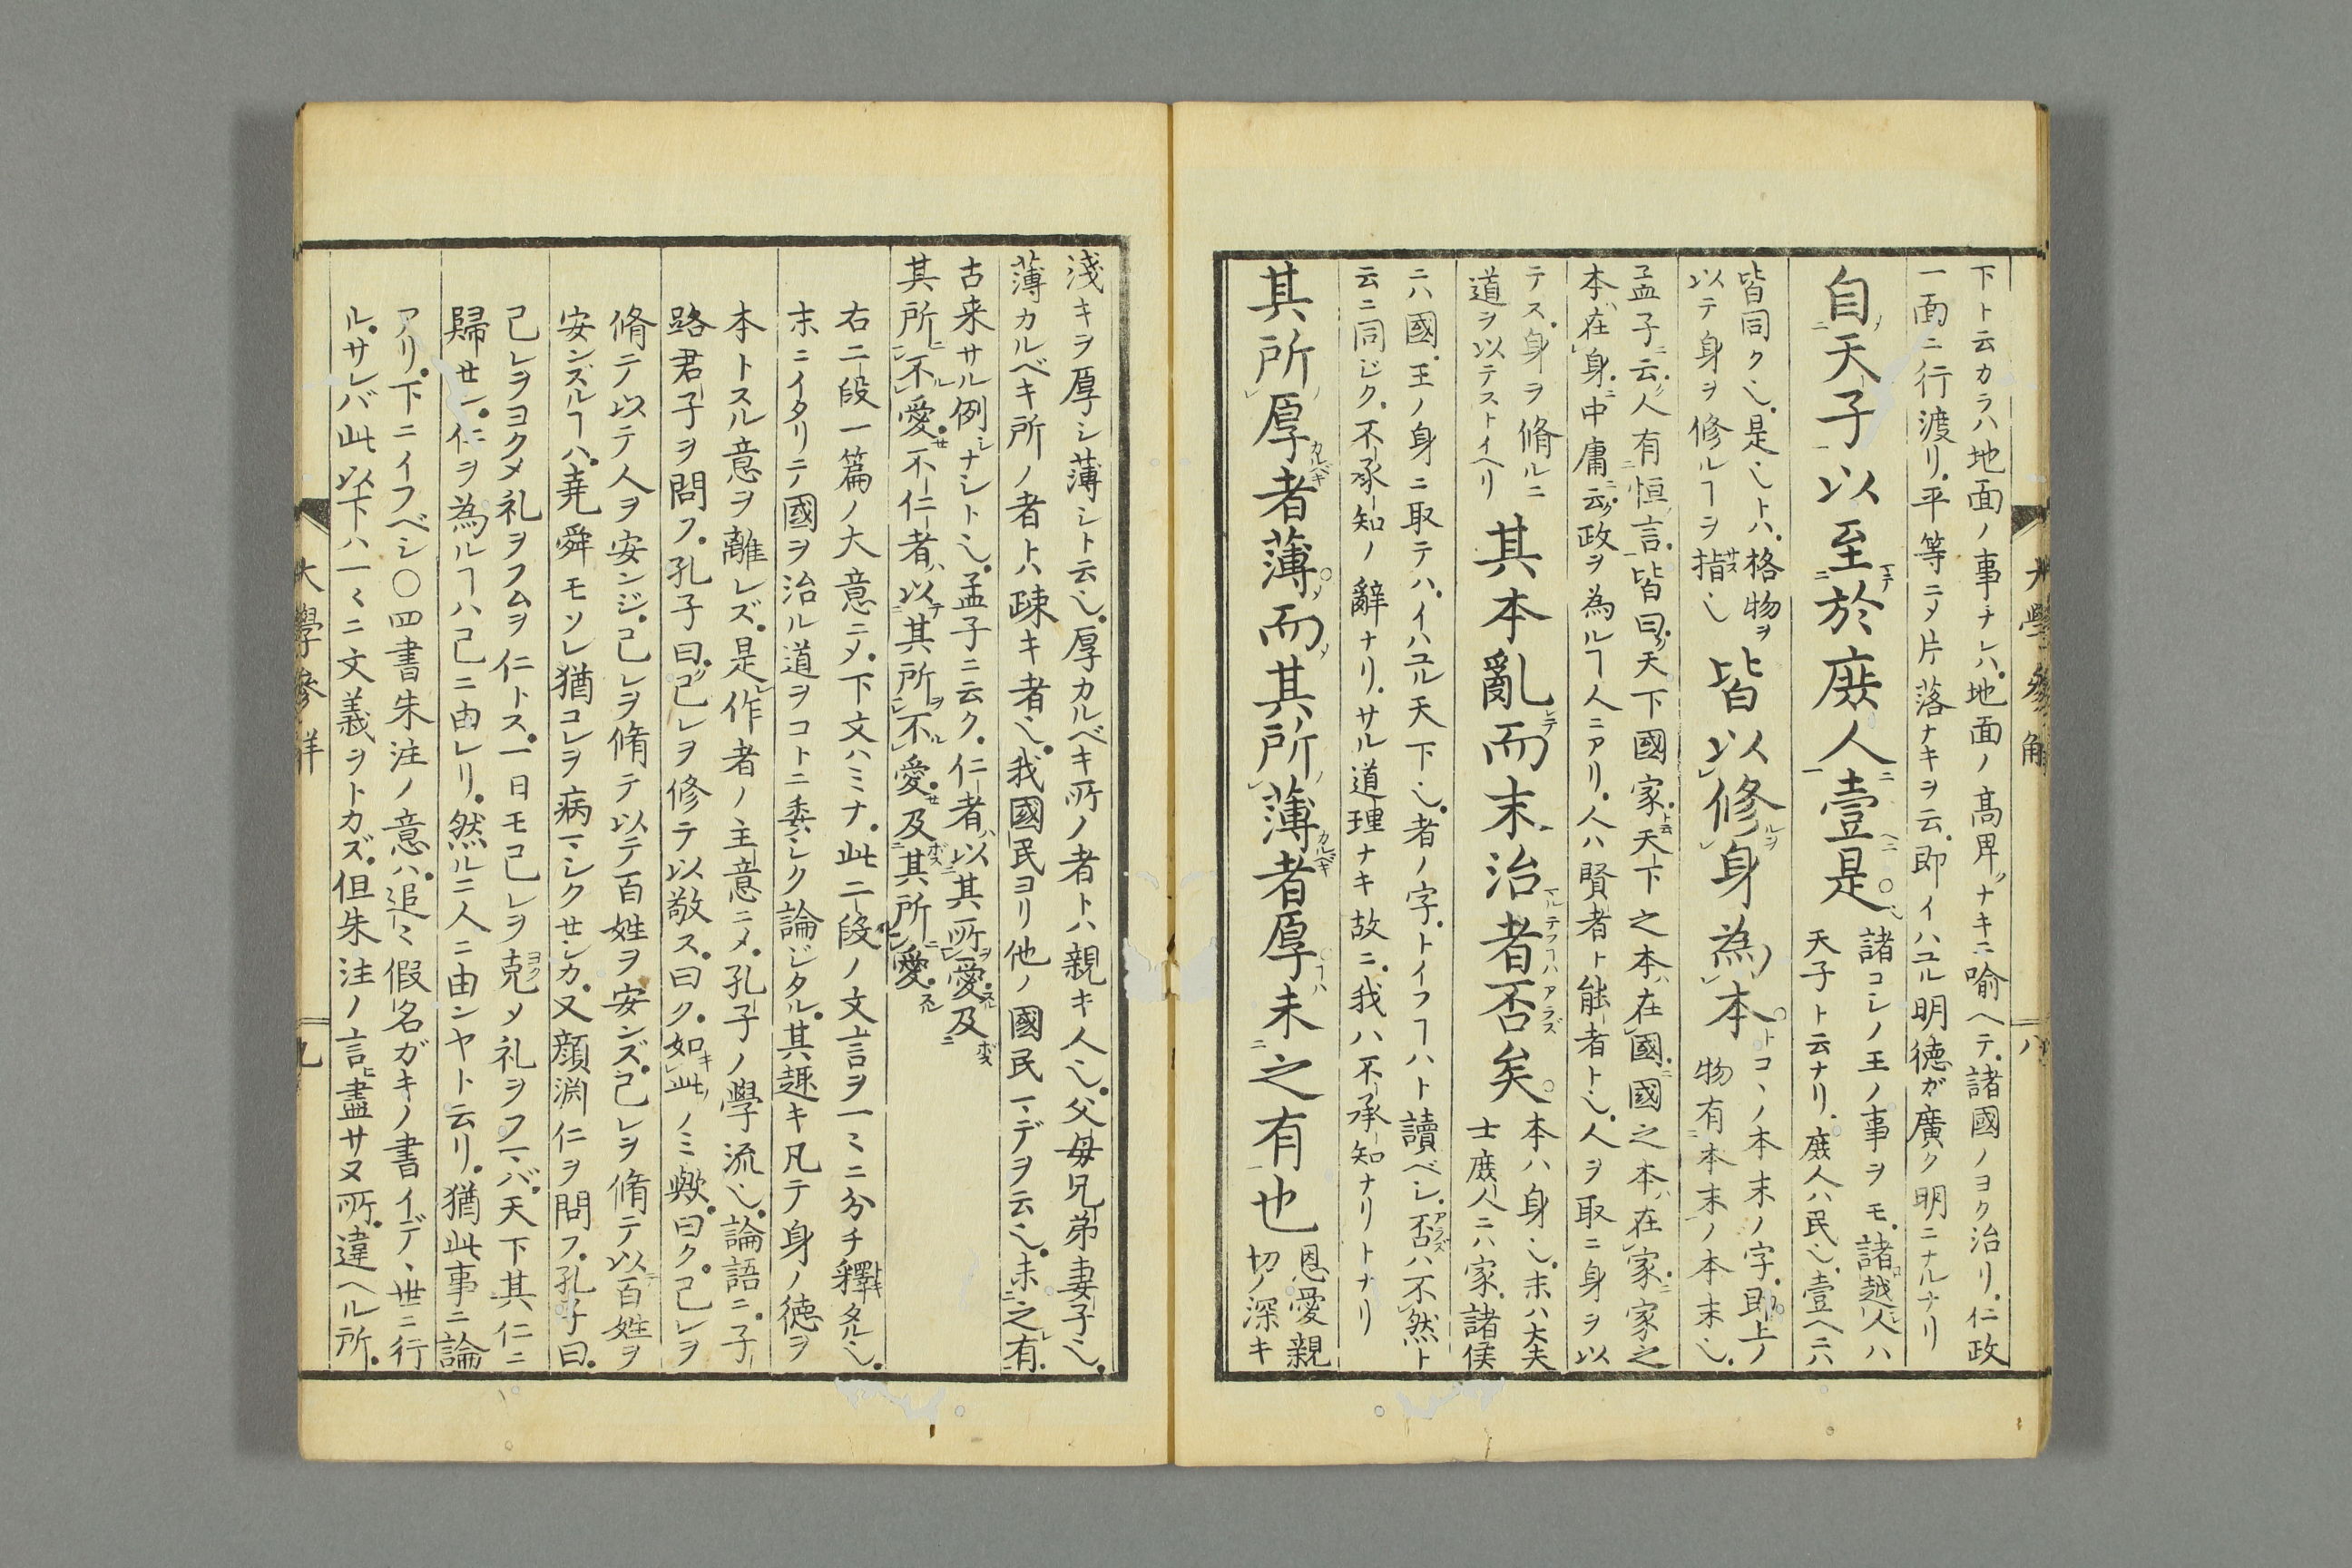 下ト云カラハ地面ノ事ナレハ。地面ノ高卑ナキニ喩ヘテ。諸國ノヨク治リ。仁政
一面ニ行渡リ。平等ニメ片落ナキヲ云。即イハユル明徳ガ廣ク明ニナルナリ
自天子以至於庶人壹是
諸コレノ王ノ事ヲモ。諸越人ハ
天子ト云ナリ。庶人ハ民也。壹ヘニハ
皆同ク也。是也トハ。格物ヲ
以テ身ヲ修ルヿヲ指也
皆以修身為本
トコヽノ本末ノ字。即上ノ
物有本末ノ本末也。
孟子云。人有恒言。皆曰。天下國家。天下之本在國。國之本在家。家之
本在身。中庸云。政ヲ為ルヿ人ニアリ。人ハ賢者ト能者ト也。人ヲ取ニ身ヲ以
テス。身ヲ脩ルニ
道ヲ以テストイヘリ
其本亂而末治者否矣
本ハ身也。末ハ大夫
士庶人ニハ家。諸侯
ニハ國。王ノ身ニ取テハ。イハユル天下也。者ノ字。トイフヿハト讀ベシ。否ハ不然ト
云ニ同ジク。不承知ノ辭ナリ。サル道理ナキ故ニ。我ハ不承知ナリトナリ
其所厚者薄而其所薄者厚未之有也
恩愛親
切ノ深キ
大學參解
八
淺キヲ厚シ薄シト云也。厚カルベキ所ノ者トハ親キ人也。父母兄弟妻子也。
薄カルベキ所ノ者トハ疎キ者也。我國民ヨリ他ノ國民マデヲ云也。未之有。
古来サル例シナシト也。孟子ニ云ク。仁者以其所愛及
其所不愛。不仁者以其所不愛。及其所愛。
右二段一篇ノ大意ニメ。下文ハミナ。此二段ノ文言ヲ一〻ニ分チ釋タル也。
末ニイタリテ國ヲ治ル道ヲコトニ委シク論ジタル。其趣キ凡テ身ノ徳ヲ
本トスル意ヲ離レズ。是作者ノ主意ニメ。孔子ノ學流也。論語ニ。子
路君子ヲ問フ。孔子曰。己レヲ修テ以敬ス。曰ク。如此ノミ歟。曰ク。己レヲ
脩テ以テ人ヲ安ンジ。己レヲ脩テ以テ百姓ヲ安ンズ。己レヲ脩テ以百姓ヲ
安ンズルヿハ。堯舜モソレ猶コレヲ病マシクセシカ。又顔渕仁ヲ問フ。孔子曰。
己レヲヨクメ礼ヲフムヲ仁トス。一日モ己レヲ克メ礼ヲフマバ。天下其仁ニ
歸セン。仁ヲ為ルヿハ己ニ由レリ。然ルニ人ニ由ンヤト云リ。猶此事ニ論
アリ。下ニイフベシ〇四書朱注ノ意ハ。追〻假名ガキノ書イデヽ世ニ行
ル。サレバ此以下ハ一〻ニ文義ヲトカズ。但朱注ノ言盡サヌ所。違ヘル所。
大學參解
九